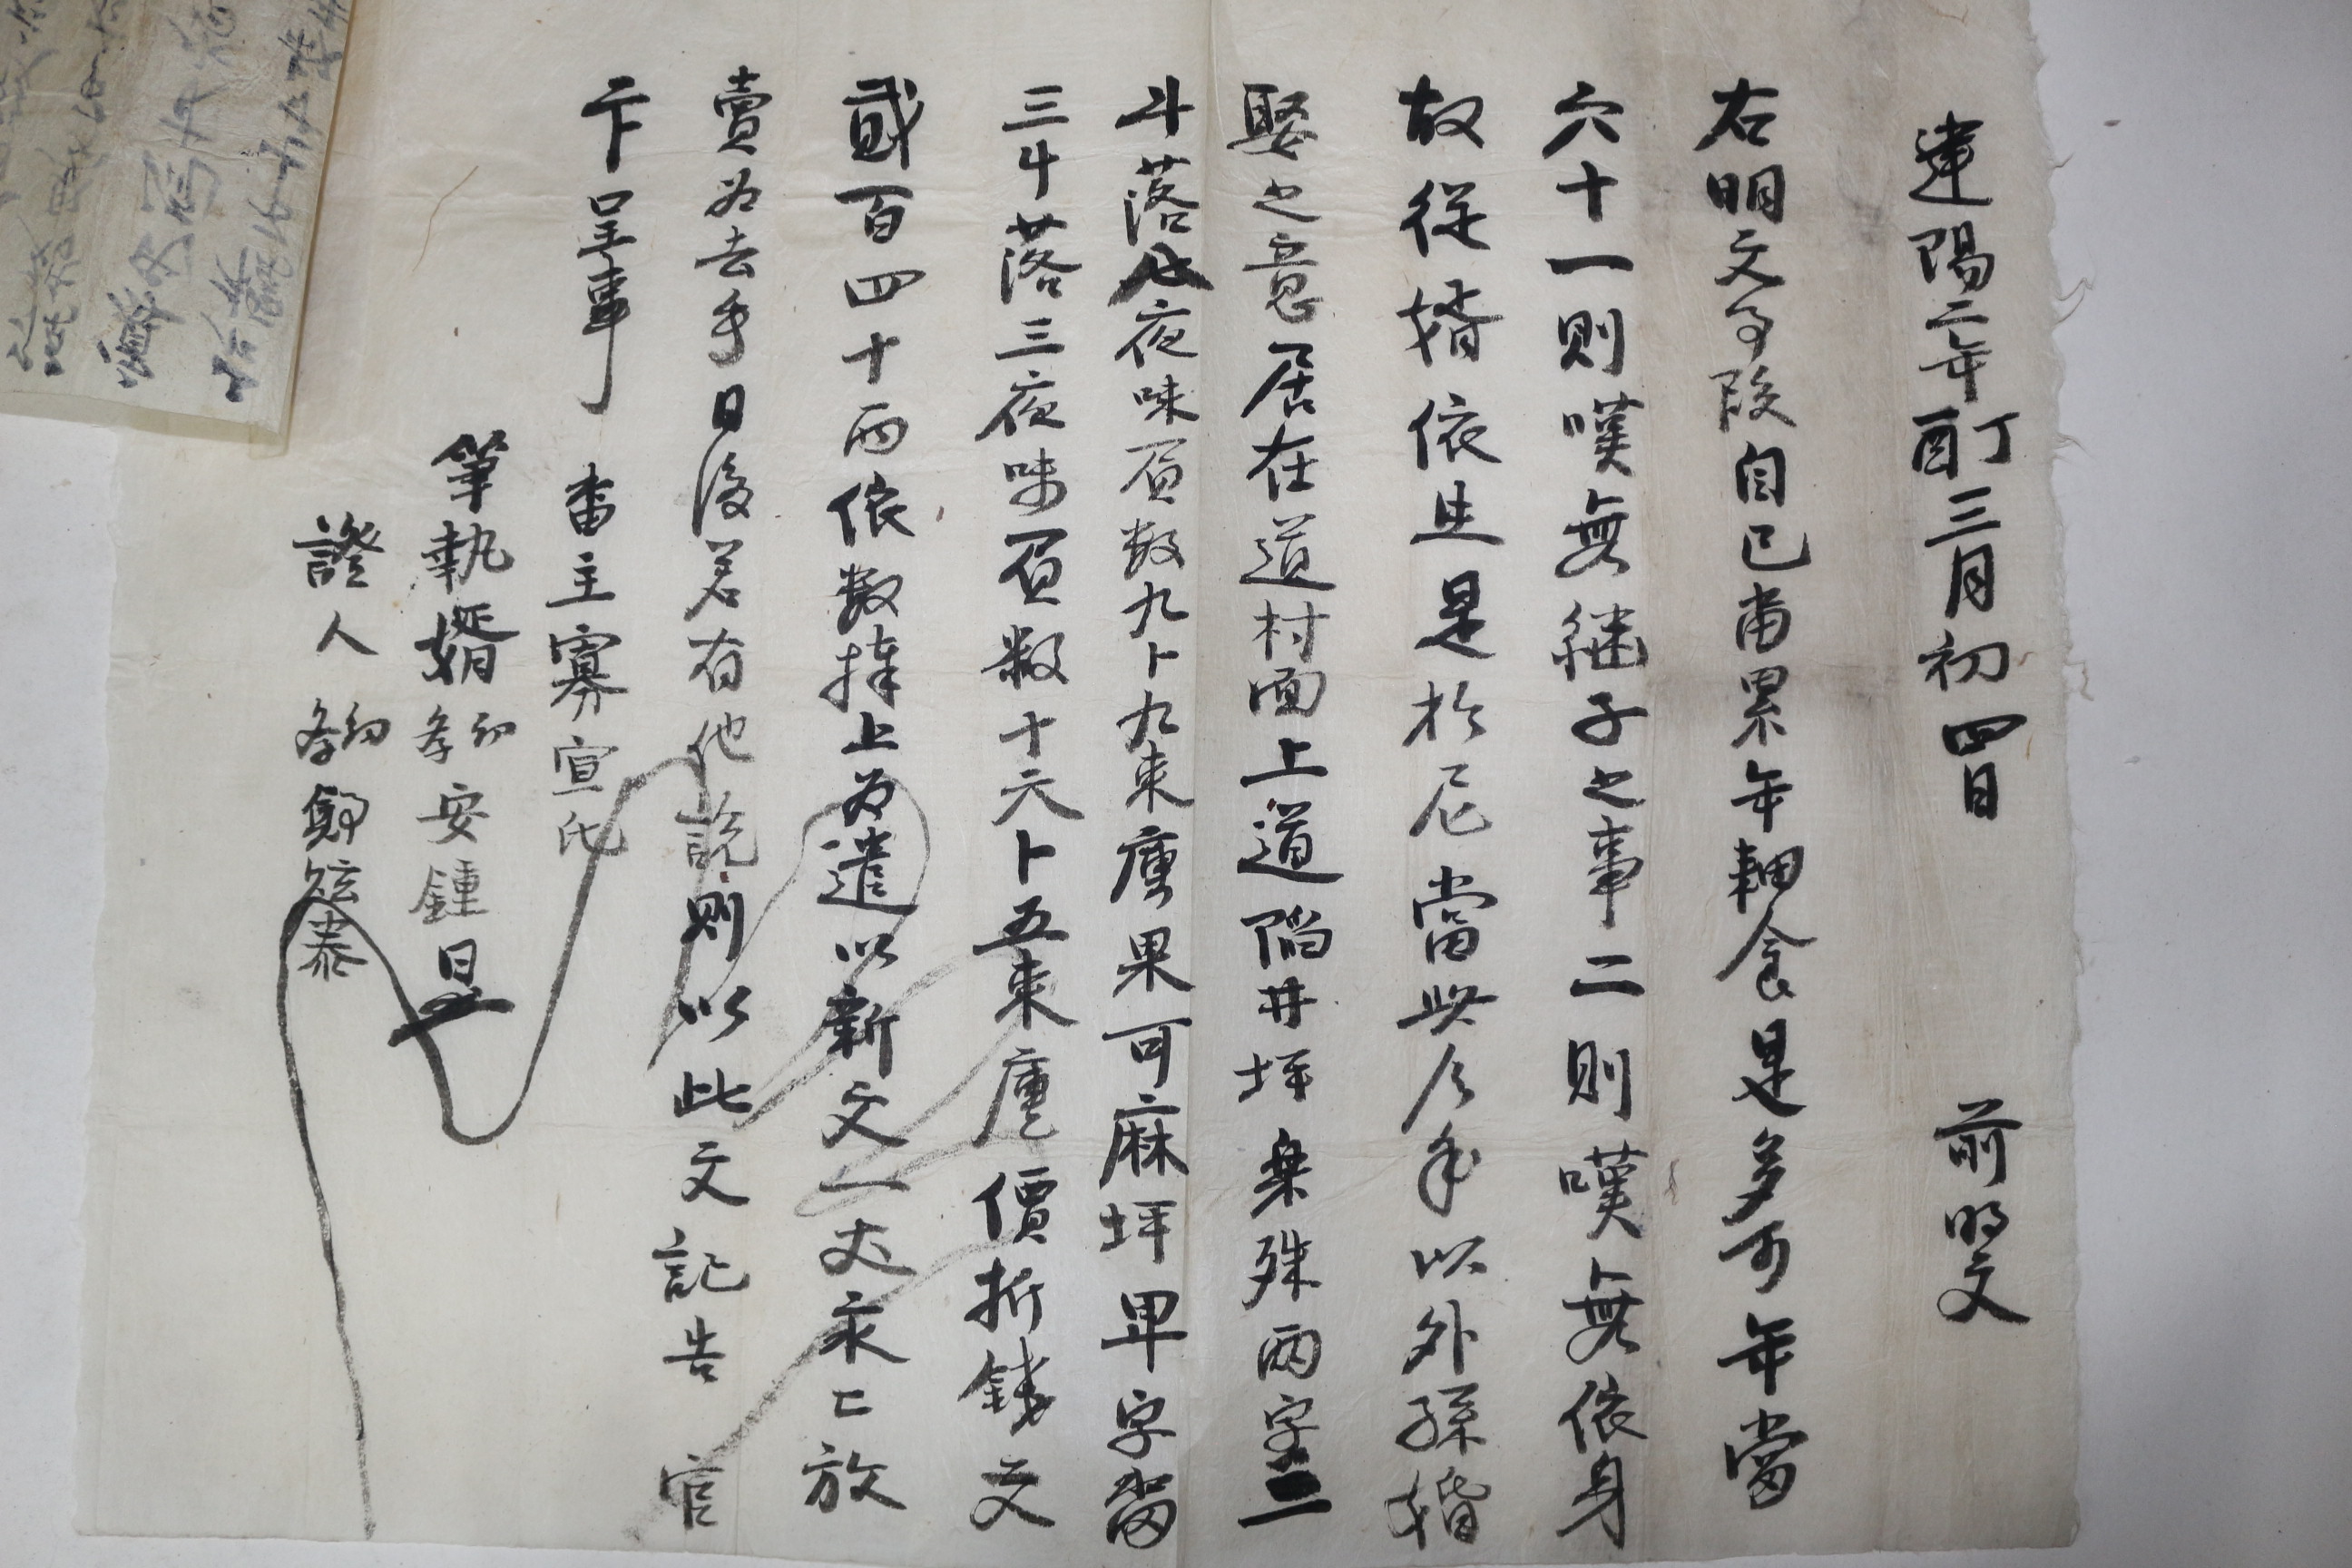 建陽二年丁酉三月初四日 前明文
右明文事段自己畓累年耕食是多可年當
六十一則嘆無継子之事二則嘆無依身
故從婿依生是於尼當此今年以外孫婚
娶之意居在道村面上道陷井坪桒殊兩字二
斗落七夜味負数九卜九束㐣果可麻坪畢字畓
三斗落三夜味負数十六卜五束㐣價折錢文
貳百四十兩依数捧上為遣以新文一丈永〻放
賣為去乎日後若有他說則以此文記告官
卞呈事
畓主寡宣氏
筆執婿幼學安鍾昱
證人幼學鄭鉉泰